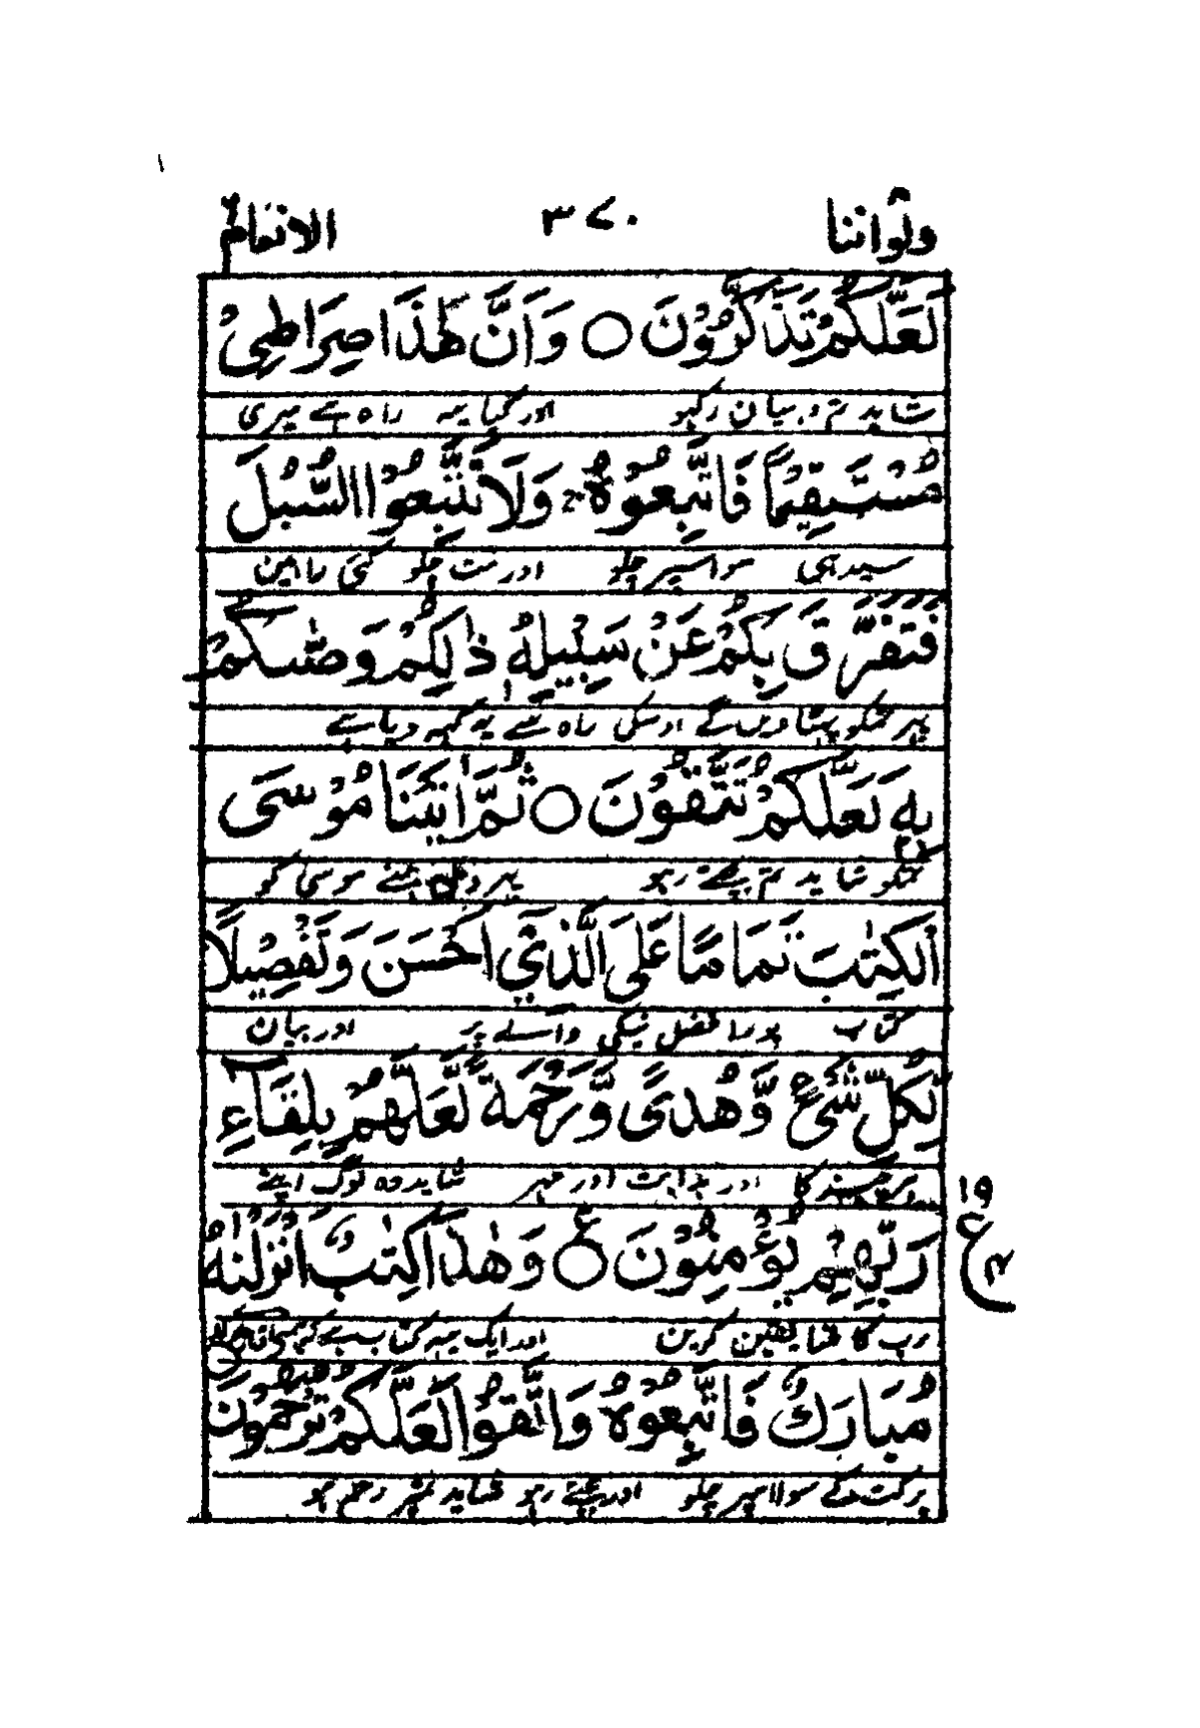 ولواننا ٣٧٠ الانعام
لَعَلَّكُمْ تَذَكَّرُوْنَ ○ وَاَنَّ هٰذَا صِرَاطِيْ
شاید تم دہیان رکہو اور کہا یہ راہ ہے میری
مُسْتَقِيْمًا فَاتَّبِعُوْهُ ۚ وَلَا تَتَّبِعُوا السُّبُلَ
سیدہی سو اسپر چلو اور مت چلو کئی راہین
فَتَفَرَّقَ بِكُمْ عَنْ سَبِيْلِهٖ ذٰلِكُمْ وَصّٰىكُمْ
پہر تمکو پہٹا دیں گے اوسکی راہ سے یہ کہہ دیا ہے
بِهٖ لَعَلَّكُمْ تَتَّقُوْنَ ○ ثُمَّ اٰتَيْنَا مُوْسَى
تمکو شاید تم بچتے رہو پہر دی ہمنے موسی کو
الْكِتٰبَ تَمَامًا عَلَى الَّذِيْٓ اَحْسَنَ وَتَفْصِيْلًا
کتاب پورا فضل نیکی والے پر اور بیان
لِّكُلِّ شَيْءٍ وَّهُدًى وَّرَحْمَةً لَّعَلَّهُمْ بِلِقَآءِ
ہر چیز کا اور ہدایت اور مہر شاید وہ لوگ اپنے
رَبِّهِمْ يُؤْمِنُوْنَ ○ ع وَهٰذَا كِتٰبٌ اَنْزَلْنٰهُ
١٩
ع
رب کا ملنا یقین کرین اور ایک یہ کتاب ہے کہ ہمنے
مُبَارَكٌ فَاتَّبِعُوْهُ وَاتَّقُوْا لَعَلَّكُمْ تُرْحَمُوْنَ
برکت کے سو اسپر چلو اور بچتے رہو شاید تمپر رحم ہو